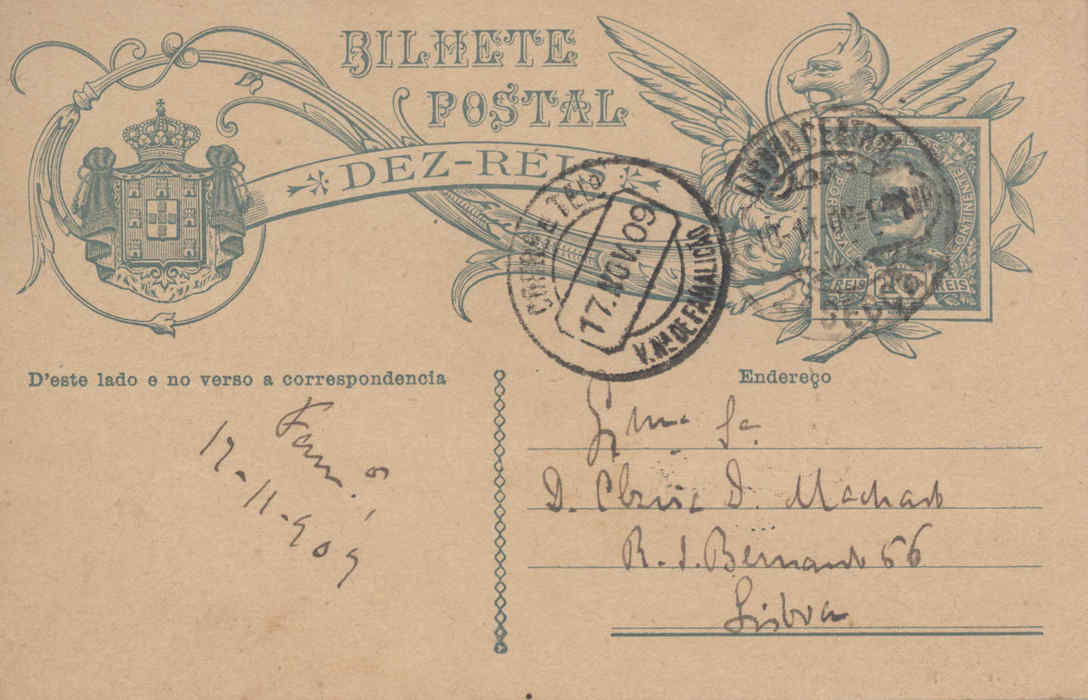 BILHETE
POSTAL
DEZ-RÉIS
CORREIO E TELEG
17.NOV.09
V.NA.DE FAMALICÃO
LISBOA CENTRAL
CONTINENTE
REIS REIS
D'este lado e no verso a correspondencia
Endereço
Fam.
17-11-909
Exma Sa.
D. D. Machado
R. S. Bernardo 66
Lisboa